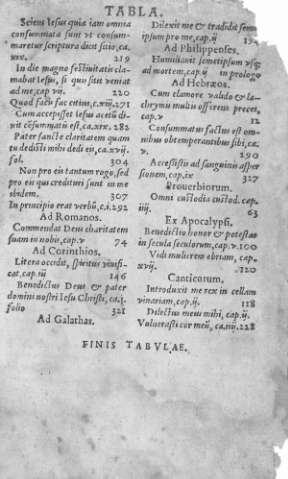 TABLA.
Sciens Iesus quia iam omnia
consummata sunt vt consum-
maretur scriptura dicit sitio, ca.
xix. 219
In die magno festiuitatis cla-
mabat Iesus, si quis sitit veniat
ad me, cap vij. 220
Quod facis fac citius, c.xiij. 271
Cum accepisset Iesus acetũ di-
xit cõsummatũ est, ca.xix. 282
Pater sancte claritatem quam
tu dedisti mihi dedi eis, ca.xvij.
fol. 304
Non pro eis tantum rogo, sed
pro eis qui credituri sunt in me
ibidem. 307
In principio erat verbũ, c.i. 292
Ad Romanos.
Commendat Deus charitatem
suam in nobis, cap.v 74
Ad Corinthios.
Litera occidit, spiritus viuifi-
cat, cap.iij 146
Benedictus Deus & pater
domini nostri Iesu Christi, ca.j.
folio 321
Ad Galathas.
Dilexit me & tradidit sem
ipsum pro me, cap.ij 194
Ad Philippenses.
Humiliauit semetipsum vsq;
ad mortem, cap.ij in prologo
Ad Hebræos.
Cum clamore valido & la-
chrymis multis offerens preces,
cap.v 12
Consummatus factus est om-
nibus obtemperantibus sibi, ca.
290
Accessistis ad sanguinis asper
sionem, cap.ix 327
Prouerbiorum.
Omni custodia custod. cap.
iiij. 63
Ex Apocalypsi.
Benedictio honor & potestas
in secula seculorum, cap.v. 100
Vidi mulierem ebriam, cap.
xvij. 120
Canticorum.
Introduxit me rex in cellam
vinariam, cap.ij. 118
Dilectus meus mihi, cap.ij.
Vulnerasti cor meũ, ca.iiij. 228
FINIS TABVLAE.